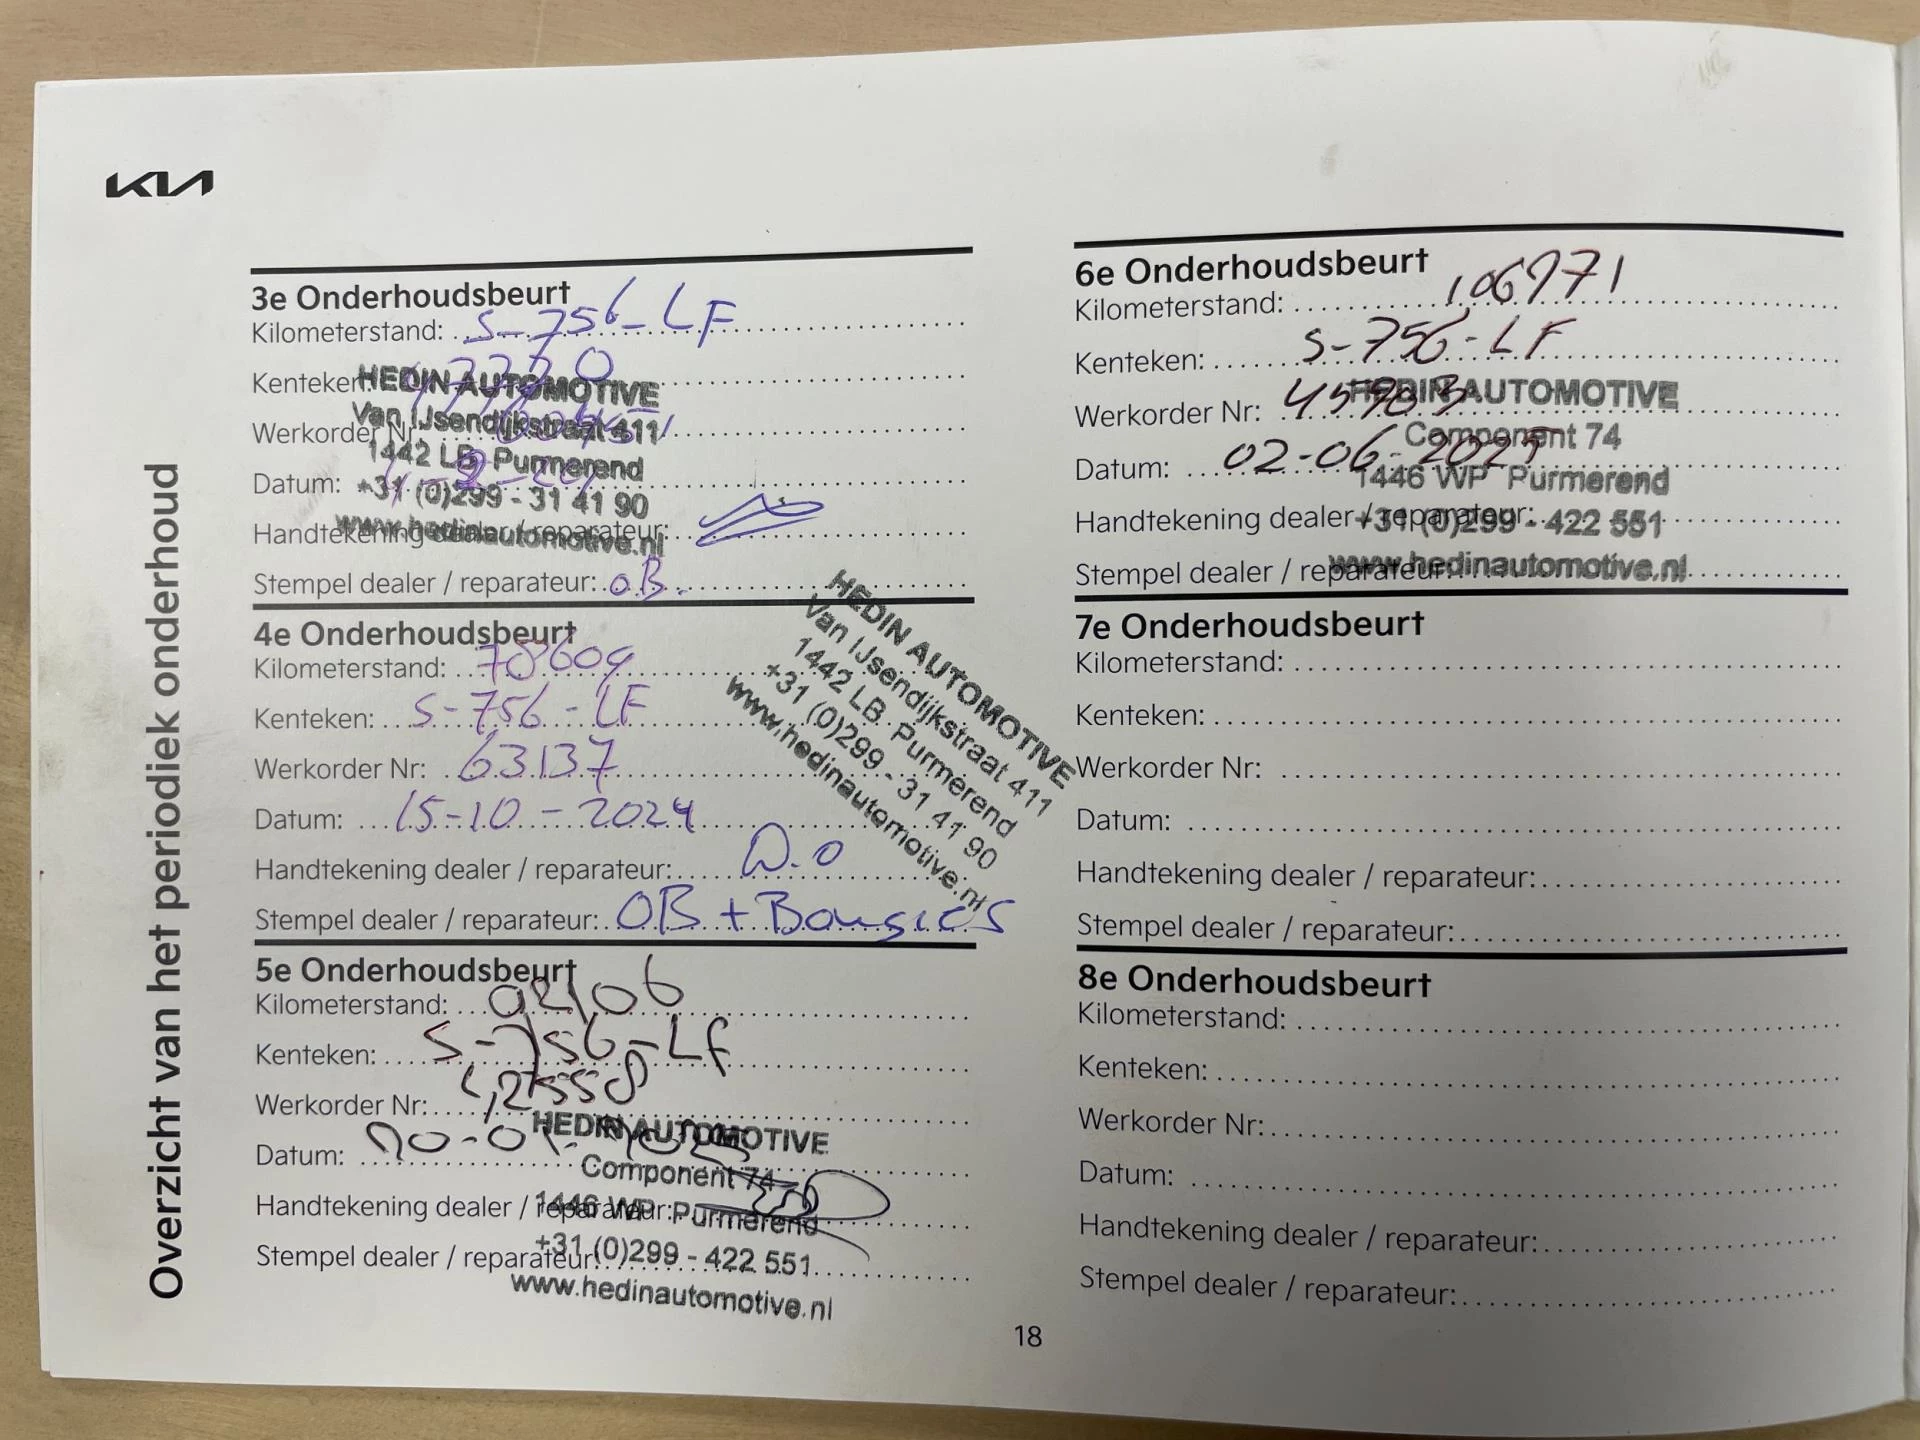 KIA
Overzicht van het periodiek onderhoud
3e Onderhoudsbeurt
Kilometerstand: S-756-LF
Kenteken
Werkorder Nr.
Datum:
Handtekening dealer / reparateur:
Stempel dealer / reparateur: O.B.
HEDIN AUTOMOTIVE
Van IJsendijkstraat 411
1442 LB Purmerend
+31 (0)299 - 31 41 90
www.hedinautomotive.nl
4e Onderhoudsbeurt
Kilometerstand: 78609
Kenteken: S-756-LF
Werkorder Nr: 63137
Datum: 15-10-2024
Handtekening dealer / reparateur:
Stempel dealer / reparateur: OB + Bougies
HEDIN AUTOMOTIVE
Van IJsendijkstraat 411
1442 LB Purmerend
+31 (0)299 - 31 41 90
www.hedinautomotive.nl
5e Onderhoudsbeurt
Kilometerstand: 92106
Kenteken: S-756-LF
Werkorder Nr: 42558
Datum:
Handtekening dealer / reparateur:
Stempel dealer / reparateur:
HEDIN AUTOMOTIVE
Component 74
1446 WP Purmerend
+31 (0)299 - 422 551
www.hedinautomotive.nl
6e Onderhoudsbeurt
Kilometerstand: 106971
Kenteken: S-756-LF
Werkorder Nr: 45903
Datum: 02-06-2025
Handtekening dealer / reparateur:
Stempel dealer / reparateur:
HEDIN AUTOMOTIVE
Component 74
1446 WP Purmerend
+31 (0)299 - 422 551
www.hedinautomotive.nl
7e Onderhoudsbeurt
Kilometerstand:
Kenteken:
Werkorder Nr:
Datum:
Handtekening dealer / reparateur:
Stempel dealer / reparateur:
8e Onderhoudsbeurt
Kilometerstand:
Kenteken:
Werkorder Nr:
Datum:
Handtekening dealer / reparateur:
Stempel dealer / reparateur:
18